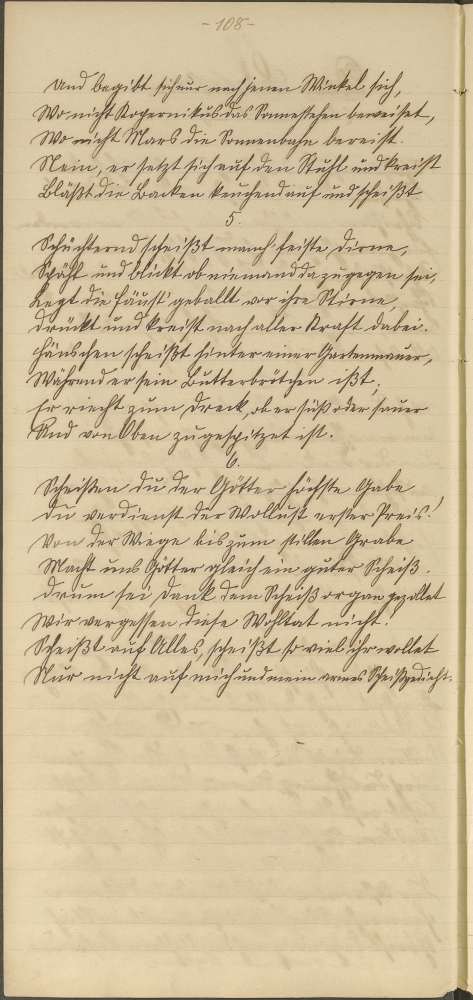 - 108 -
Und begibt sich nur nach jenen Winkel hin,
Wo nicht Kopernikus das Sonnesehen beweiset,
Wo nicht Mars die Sonnenbahn bereist.
Nein, er setzt sich auf den Stuhl und kreist
Bläßt die Backen keuchend auf und scheißt
5.
Schüchternd scheißt manch' feiste Dirne,
Späht und blickt ob niemand da zugegen sei,
Legt die Fäust' geballt vor ihre Stirne,
Drückt und kreist nach aller Kraft dabei.
Hänschen scheißt hinter einer Gartenmauer,
Während er sein Butterbrötchen ißt;
Er riecht zum Dreck, ob er süß oder sauer
Und von Oben zugespitzet ist.
6.
Scheißen du der Götter höchste Gabe
Du verdienst der Wollust erster Preis!
Von der Wiege bis zum stillen Grabe
Macht uns Götter gleich ein guter Scheiß.
Drum sei Dank dem Scheißorgan gezollet
Wir vergessen diese Wohltat nicht!
Scheißt auf Alles, scheißt so viel ihr wollet
Nur nicht auf mich und mein armes Scheißgedicht.